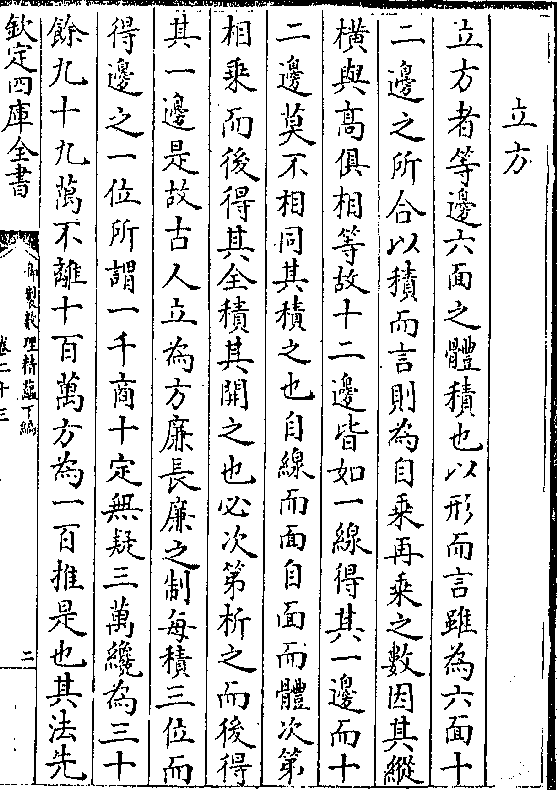 立方
立方者等邊六面之體積也以形而言雖為六面十
二邊之所合以積而言則為自乘再乘之數因其縱
橫與髙俱相等故十二邊皆如一線得其一邊而十
二邊莫不相同其積之也自線而面自面而體次第
相乘而後得其全積其開之也必次第析之而後得
其一邊是故古人立為方廉長廉之制每積三位而
得邊之一位所謂一千商十定無疑三萬纔為三十
餘九十九萬不離十百萬方為一百推是也其法先
欽定四庫全書
御製數理精蘊下編
卷二十三
二